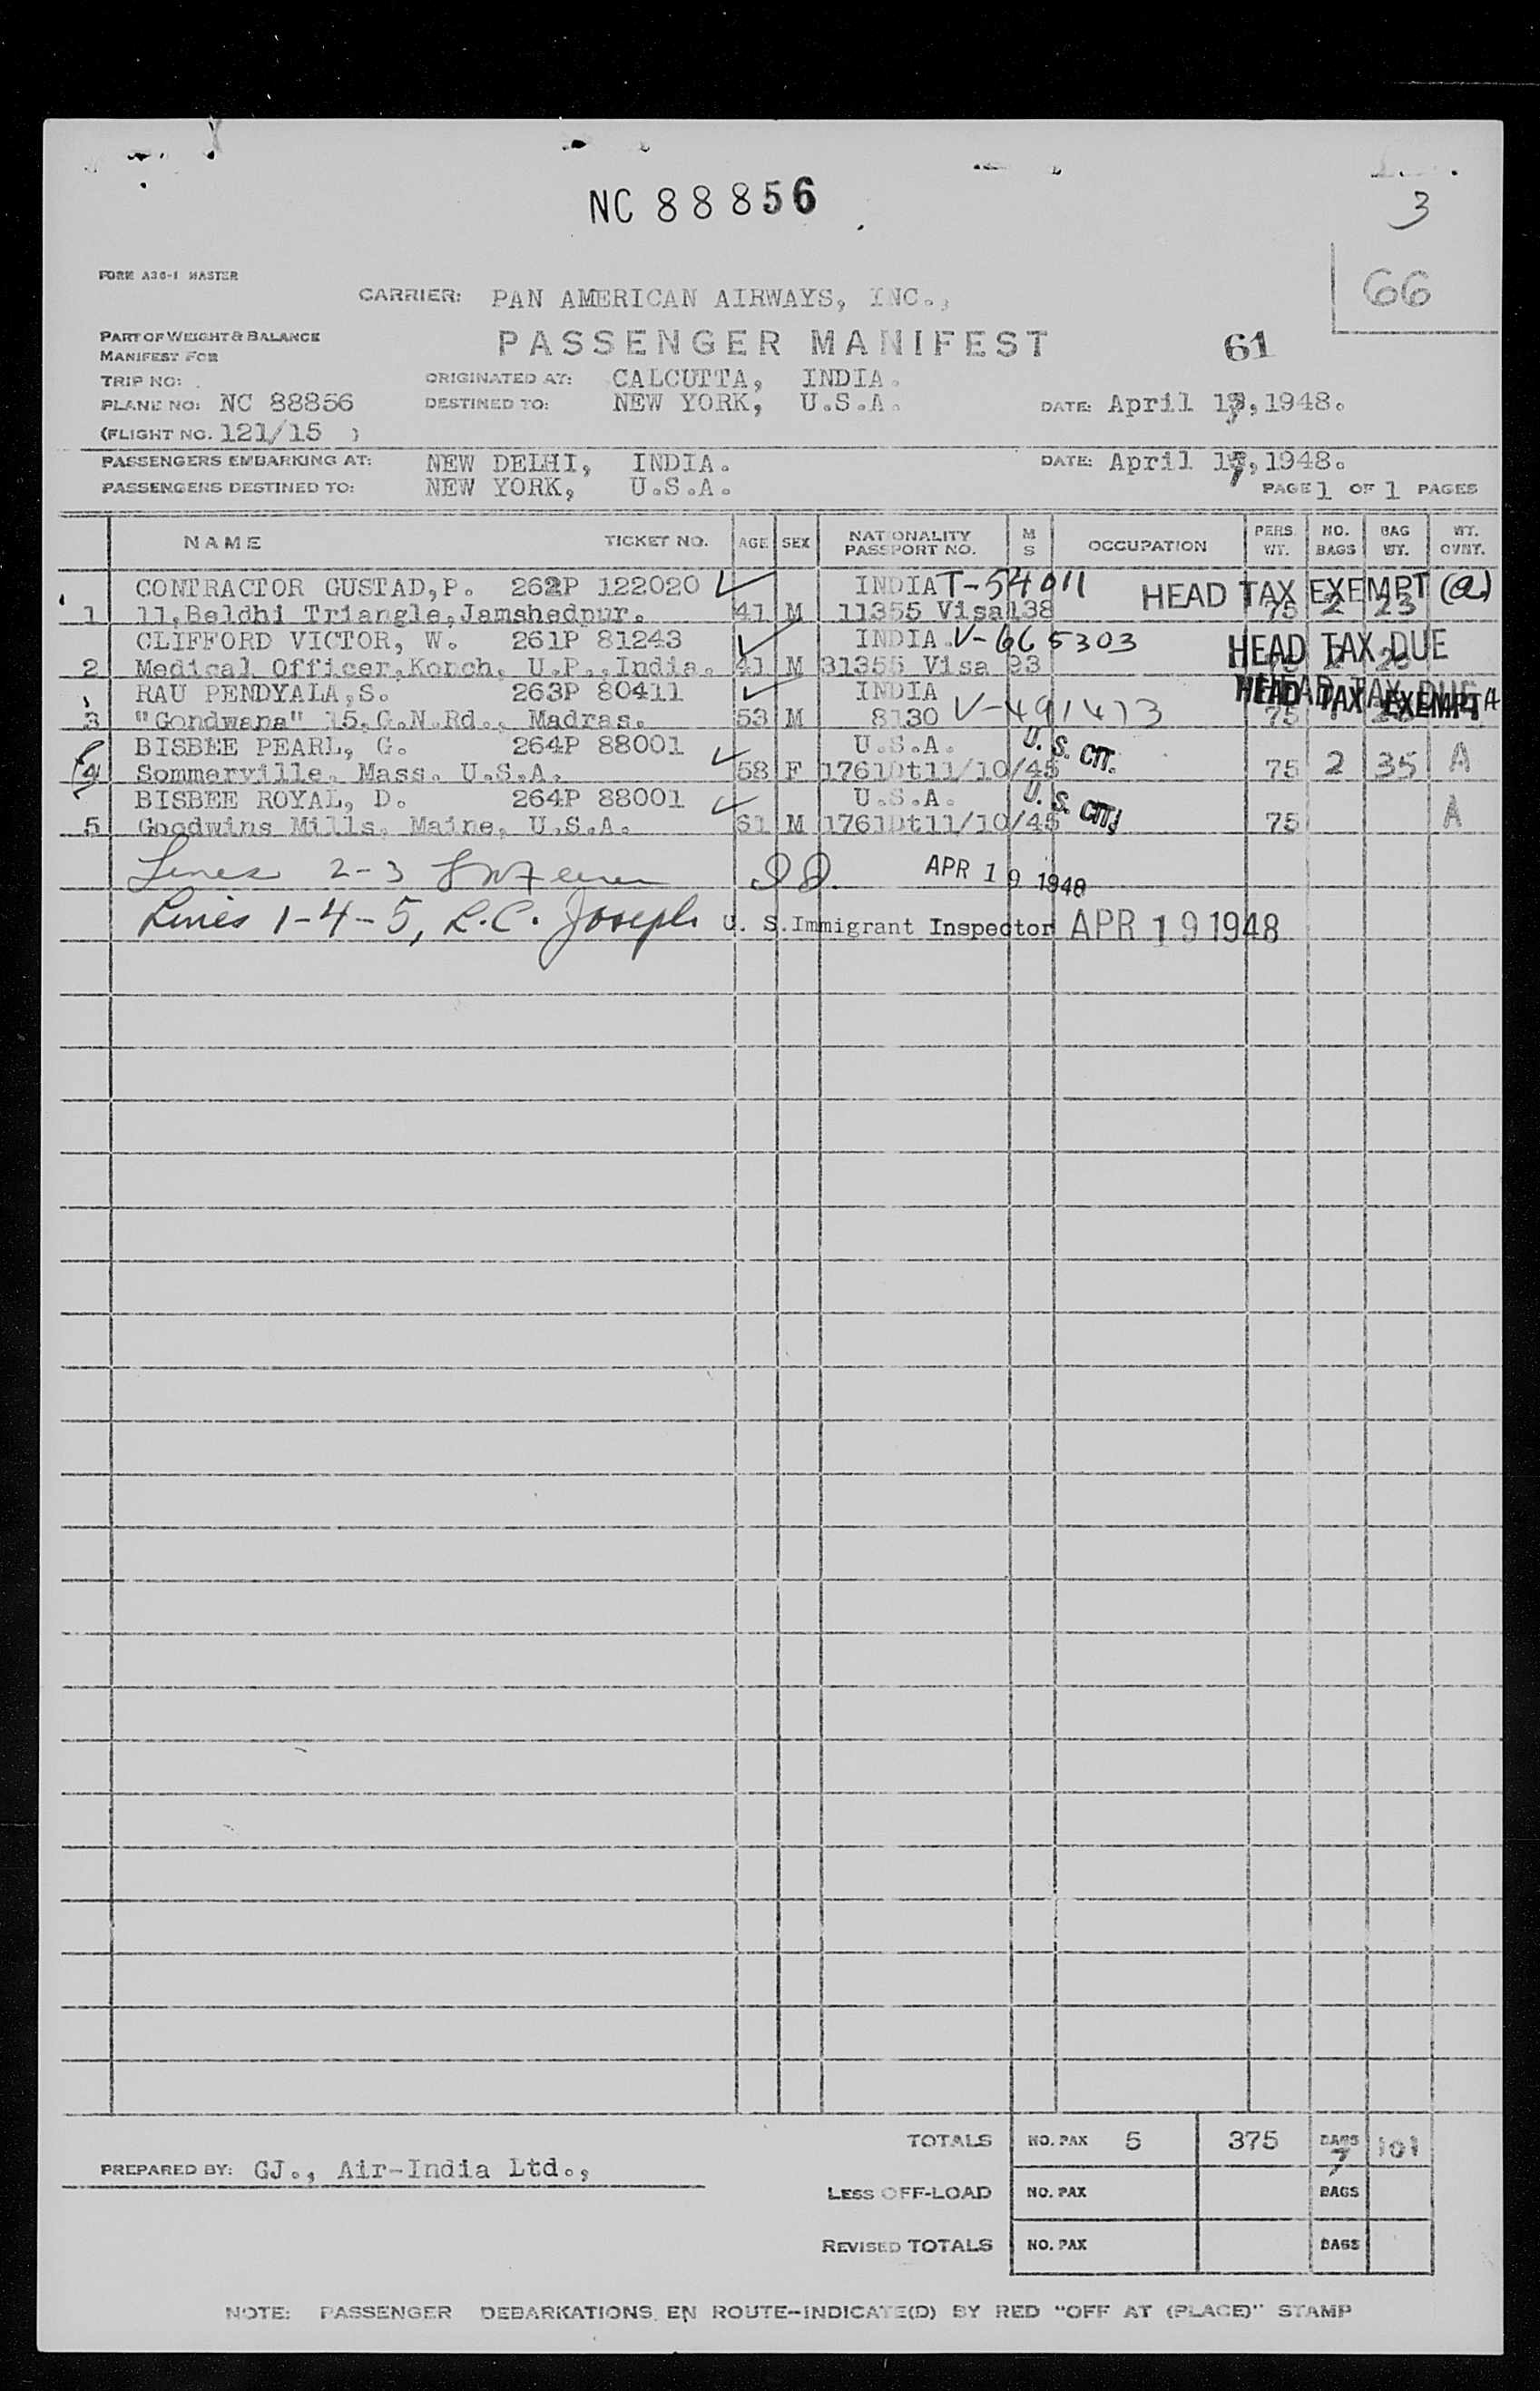 NC 88856
3
66
FORM A36-1 MASTER
CARRIER: PAN AMERICAN AIRWAYS, INC.,
PART OF WEIGHT & BALANCE
MANIFEST FOR
PASSENGER MANIFEST
61
TRIP NO:
ORIGINATED AT: CALCUTTA, INDIA.
PLANE NO: NC 88856 DESTINED TO: NEW YORK, U.S.A. DATE: April 17, 1948.
(FLIGHT NO. 121/15 )
PASSENGERS EMBARKING AT: NEW DELHI, INDIA. DATE: April 17, 1948.
PASSENGERS DESTINED TO: NEW YORK, U.S.A. PAGE 1 OF 1 PAGES
NAME TICKET NO. AGE SEX NATIONALITY PASSPORT NO. M S OCCUPATION PERS. WT. NO. BAGS BAG WT. WT. OVNT.
CONTRACTOR GUSTAD, P. 262P 122020 INDIA T-54011 HEAD TAX EXEMPT (a)
1 11, Beldhi Triangle, Jamshedpur. 41 M 11355 Visa 138 75 2 23
CLIFFORD VICTOR, W. 261P 81243 INDIA. V-665303 HEAD TAX DUE
2 Medical Officer, Konch, U.P., India. 41 M 31355 Visa 93
RAU PENDYALA, S. 263P 80411 INDIA HEAD TAX DUE HEAD TAX EXEMPT A
3 "Gondwana" 15, G.N.Rd., Madras. 53 M 8130 V-491473 75
BISBEE PEARL, G. 264P 88001 U.S.A. U. S. CIT.
4 Sommerville. Mass. U.S.A. 58 F 1761Dt11/10/45 75 2 35 A
BISBEE ROYAL, D. 264P 88001 U.S.A. U. S. CIT.
5 Goodwins Mills. Maine, U.S.A. 61 M 1761Dt11/10/45 75 A
Lines 2-3 APR 19 1948
Lines 1-4-5, R.C. Joseph U. S. Immigrant Inspector APR 19 1948
TOTALS NO. PAX 5 375 BAGS 7 101
PREPARED BY: GJ., Air-India Ltd.,
LESS OFF-LOAD NO. PAX BAGS
REVISED TOTALS NO. PAX BAGS
NOTE: PASSENGER DEBARKATIONS EN ROUTE-INDICATE(D) BY RED "OFF AT (PLACE)" STAMP